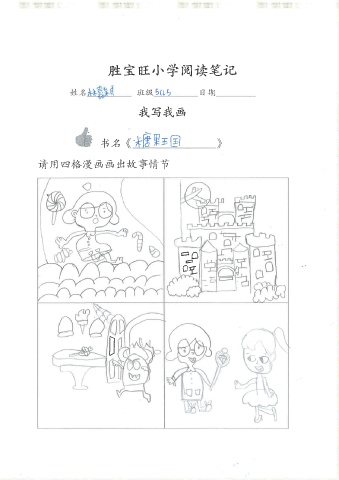 胜宝旺小学阅读笔记
姓名 班级 日期
我写我画
书名《糖果王国》
请用四格漫画画出故事情节